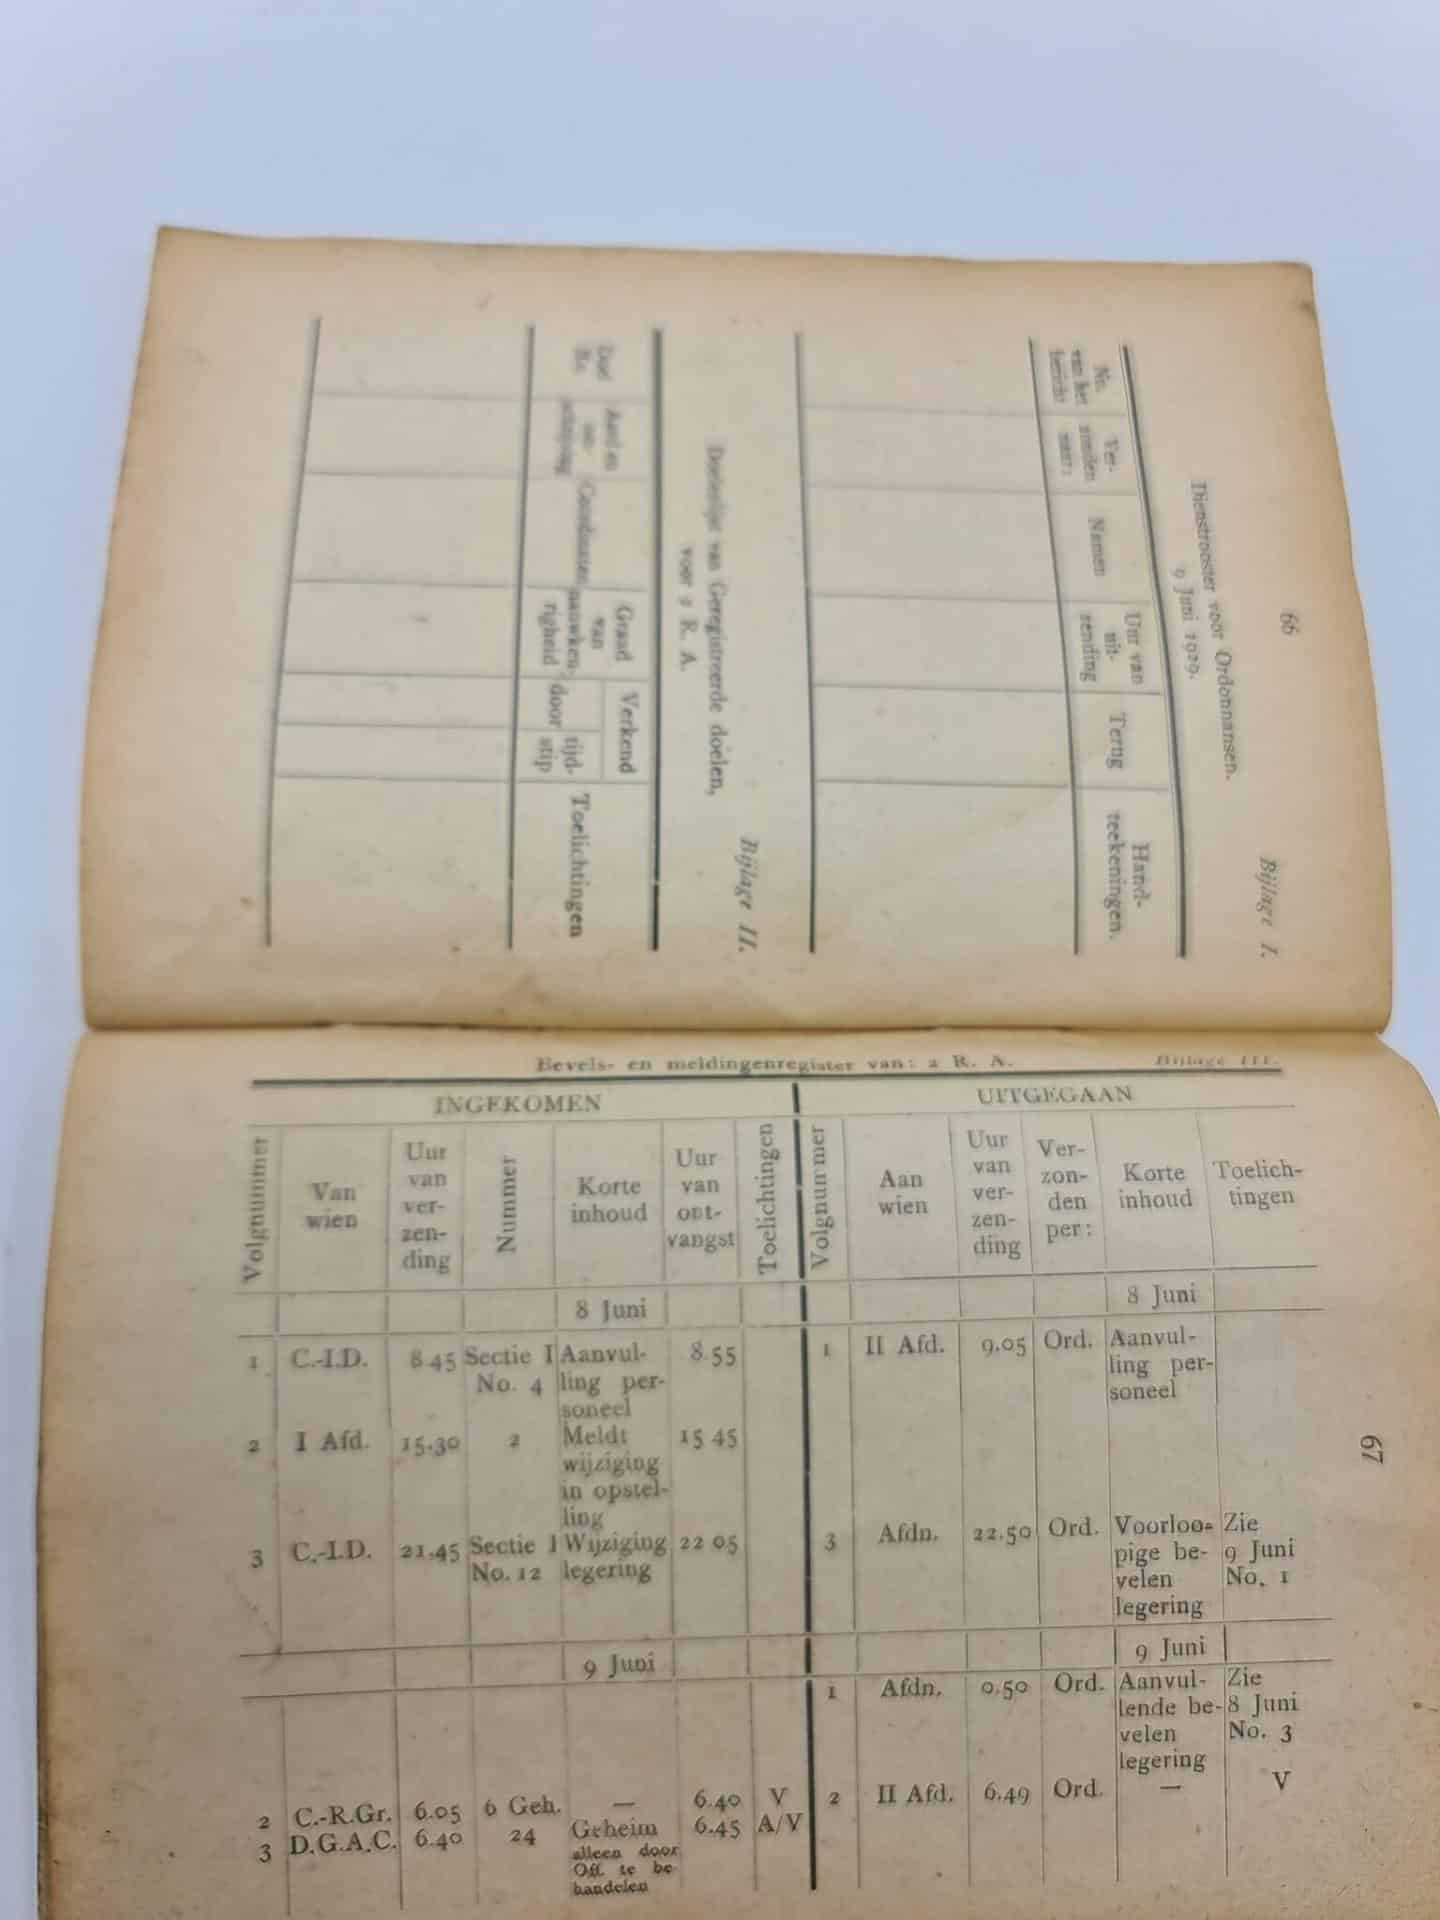 66
Bijlage I.
Dienstrooster voor Ordonnansen.
9 Juni 1929.
No. van het bericht
Ver- zonden naar:
Namen
Uur van uit- zending
Terug
Hand- teekeningen.
Bijlage II.
Doelenlijst van Geregistreerde doelen,
voor 2 R. A.
Doel
Aard en
Coordinaten
Graad van nauwkeu- righeid
Verkend
door
tijd- stip
Toelichtingen
Bevels- en meldingenregister van: 2 R. A.
Bijlage III.
INGEKOMEN
UITGEGAAN
Volgnummer
Van wien
Uur van ver- zen- ding
Nummer
Korte inhoud
Uur van ont- vangst
Toelichtingen
Volgnummer
Aan wien
Uur van ver- zen- ding
Ver- zon- den per:
Korte inhoud
Toelich- tingen
8 Juni
8 Juni
1 C.-I.D. 8.45 Sectie I Aanvul- 8.55
No. 4 ling per-
soneel
2 I Afd. 15.30 2 Meldt 15 45
wijziging
in opstel-
ling
3 C.-I.D. 21.45 Sectie I Wijziging 22 05
No. 12 legering
1 II Afd. 9.05 Ord. Aanvul-
ling per-
soneel
3 Afdn. 22.50 Ord. Voorloo- Zie
pige be- 9 Juni
velen No. 1
legering
9 Juni
9 Juni
2 C.-R.Gr. 6.05 6 Geh. — 6.40 V
3 D.G.A.C. 6.40 24 Geheim 6.45 A/V
alleen door
Off. te be-
handelen
1 Afdn. 0.50 Ord. Aanvul- Zie
lende be- 8 Juni
velen No. 3
legering
2 II Afd. 6.49 Ord. — V
67